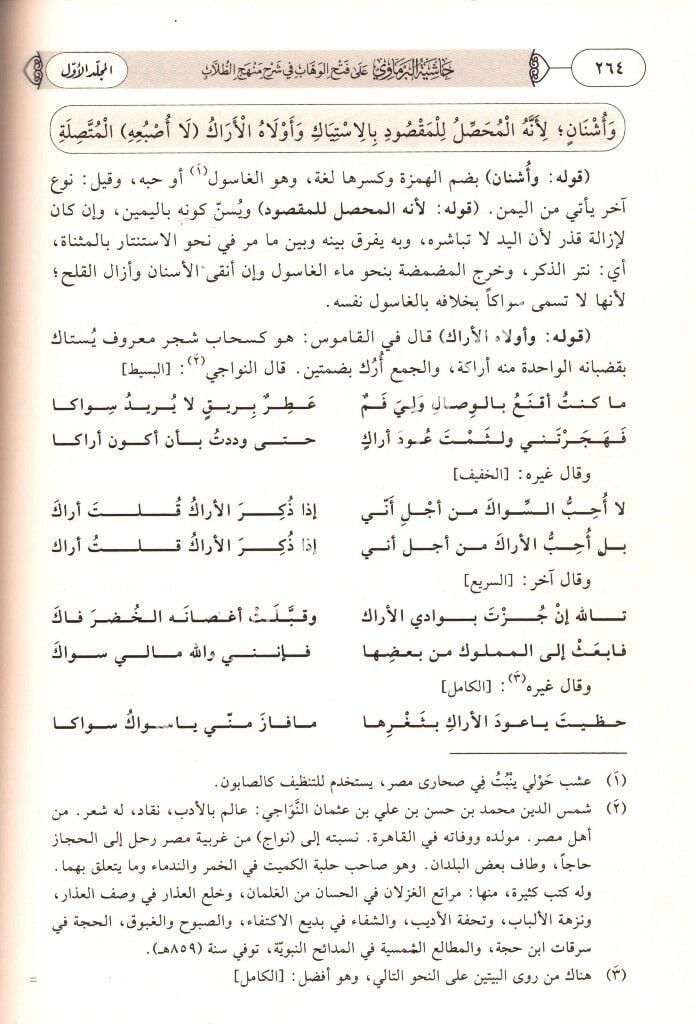 ٢٦٤
حَاشِيَةُ البِرْمَاوِيّ عَلَىٰ فَتْحِ الوَهَّابِ فِي شَرْحِ مَنْهَجِ الطُّلَّابِ
المجلّد الأوّل
وَأُشْنَانٍ؛ لِأَنَّهُ الْمُحَصِّلُ لِلْمَقْصُودِ بِالِاسْتِيَاكِ وَأَوْلَاهُ الْأَرَاكُ (لَا أُصْبُعِهِ) الْمُتَّصِلَةِ
(قوله: وأُشنان) بضم الهمزة وكسرها لغة، وهو الغاسول(١) أو حبه، وقيل: نوع
آخر يأتي من اليمن. (قوله: لأنه المحصل للمقصود) ويُسنّ كونه باليمين، وإن كان
لإزالة قذر لأن اليد لا تباشره، وبه يفرق بينه وبين ما مر في نحو الاستنتار بالمثناة،
أي: نتر الذكر، وخرج المضمضة بنحو ماء الغاسول وإن أنقى الأسنان وأزال القلح؛
لأنها لا تسمى سواكاً بخلافه بالغاسول نفسه.
(قوله: وأولاه الأراك) قال في القاموس: هو كسحاب شجر معروف يُستاك
بقضبانه الواحدة منه أراكة، والجمع أُرُك بضمتين. قال النواجي(٢): [البسيط]
ما كنتُ أقنَعُ بالوصالِ وَلِيَ فَمٌ عَطِرٌ بِرِيقٍ لا يُرِيدُ سِواكا
فَهَجَرْتَني ولثَمْتَ عُودَ أراكٍ حتى وددتُ بأن أكون أراكا
وقال غيره: [الخفيف]
لا أُحِبُّ السِّواكَ من أجْلِ أنّي إذا ذُكِرَ الأراكُ قُلتَ أراكَ
بل أُحِبُّ الأراكَ من أجل أني إذا ذُكِرَ الأراكُ قلتُ أراكَ
وقال آخر: [السريع]
تالله إنْ جُزْتَ بوادي الأراك وقبَّلَتْ أغصانَه الخُضرَ فاكَ
فابعَثْ إلى المملوك من بعضِها فإنني والله مالي سواكَ
وقال غيره(٣): [الكامل]
حظيتَ ياعودَ الأراكِ بثَغْرِها مافازَ منّي ياسواكُ سواكا
(١) عشب حَوْلي ينْبُتُ فِي صحارى مصر، يستخدم للتنظيف كالصابون.
(٢) شمس الدين محمد بن حسن بن علي بن عثمان النَّوَاجي: عالم بالأدب، نقاد، له شعر. من
أهل مصر. مولده ووفاته في القاهرة. نسبته إلى (نواج) من غربية مصر رحل إلى الحجاز
حاجاً، وطاف بعض البلدان. وهو صاحب حلبة الكميت في الخمر والندماء وما يتعلق بهما.
وله كتب كثيرة، منها: مراتع الغزلان في الحسان من الغلمان، وخلع العذار في وصف العذار،
ونزهة الألباب، وتحفة الأديب، والشفاء في بديع الاكتفاء، والصبوح والغبوق، الحجة في
سرقات ابن حجة، والمطالع الشمسية في المدائح النبويّة، توفي سنة (٨٥٩هـ).
(٣) هناك من روى البيتين على النحو التالي، وهو أفضل: [الكامل] =